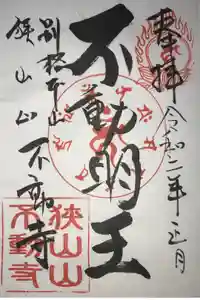 奉拝
令和二年正月
不動明王
別格本山
狭山山不動寺
狭山山
不動寺